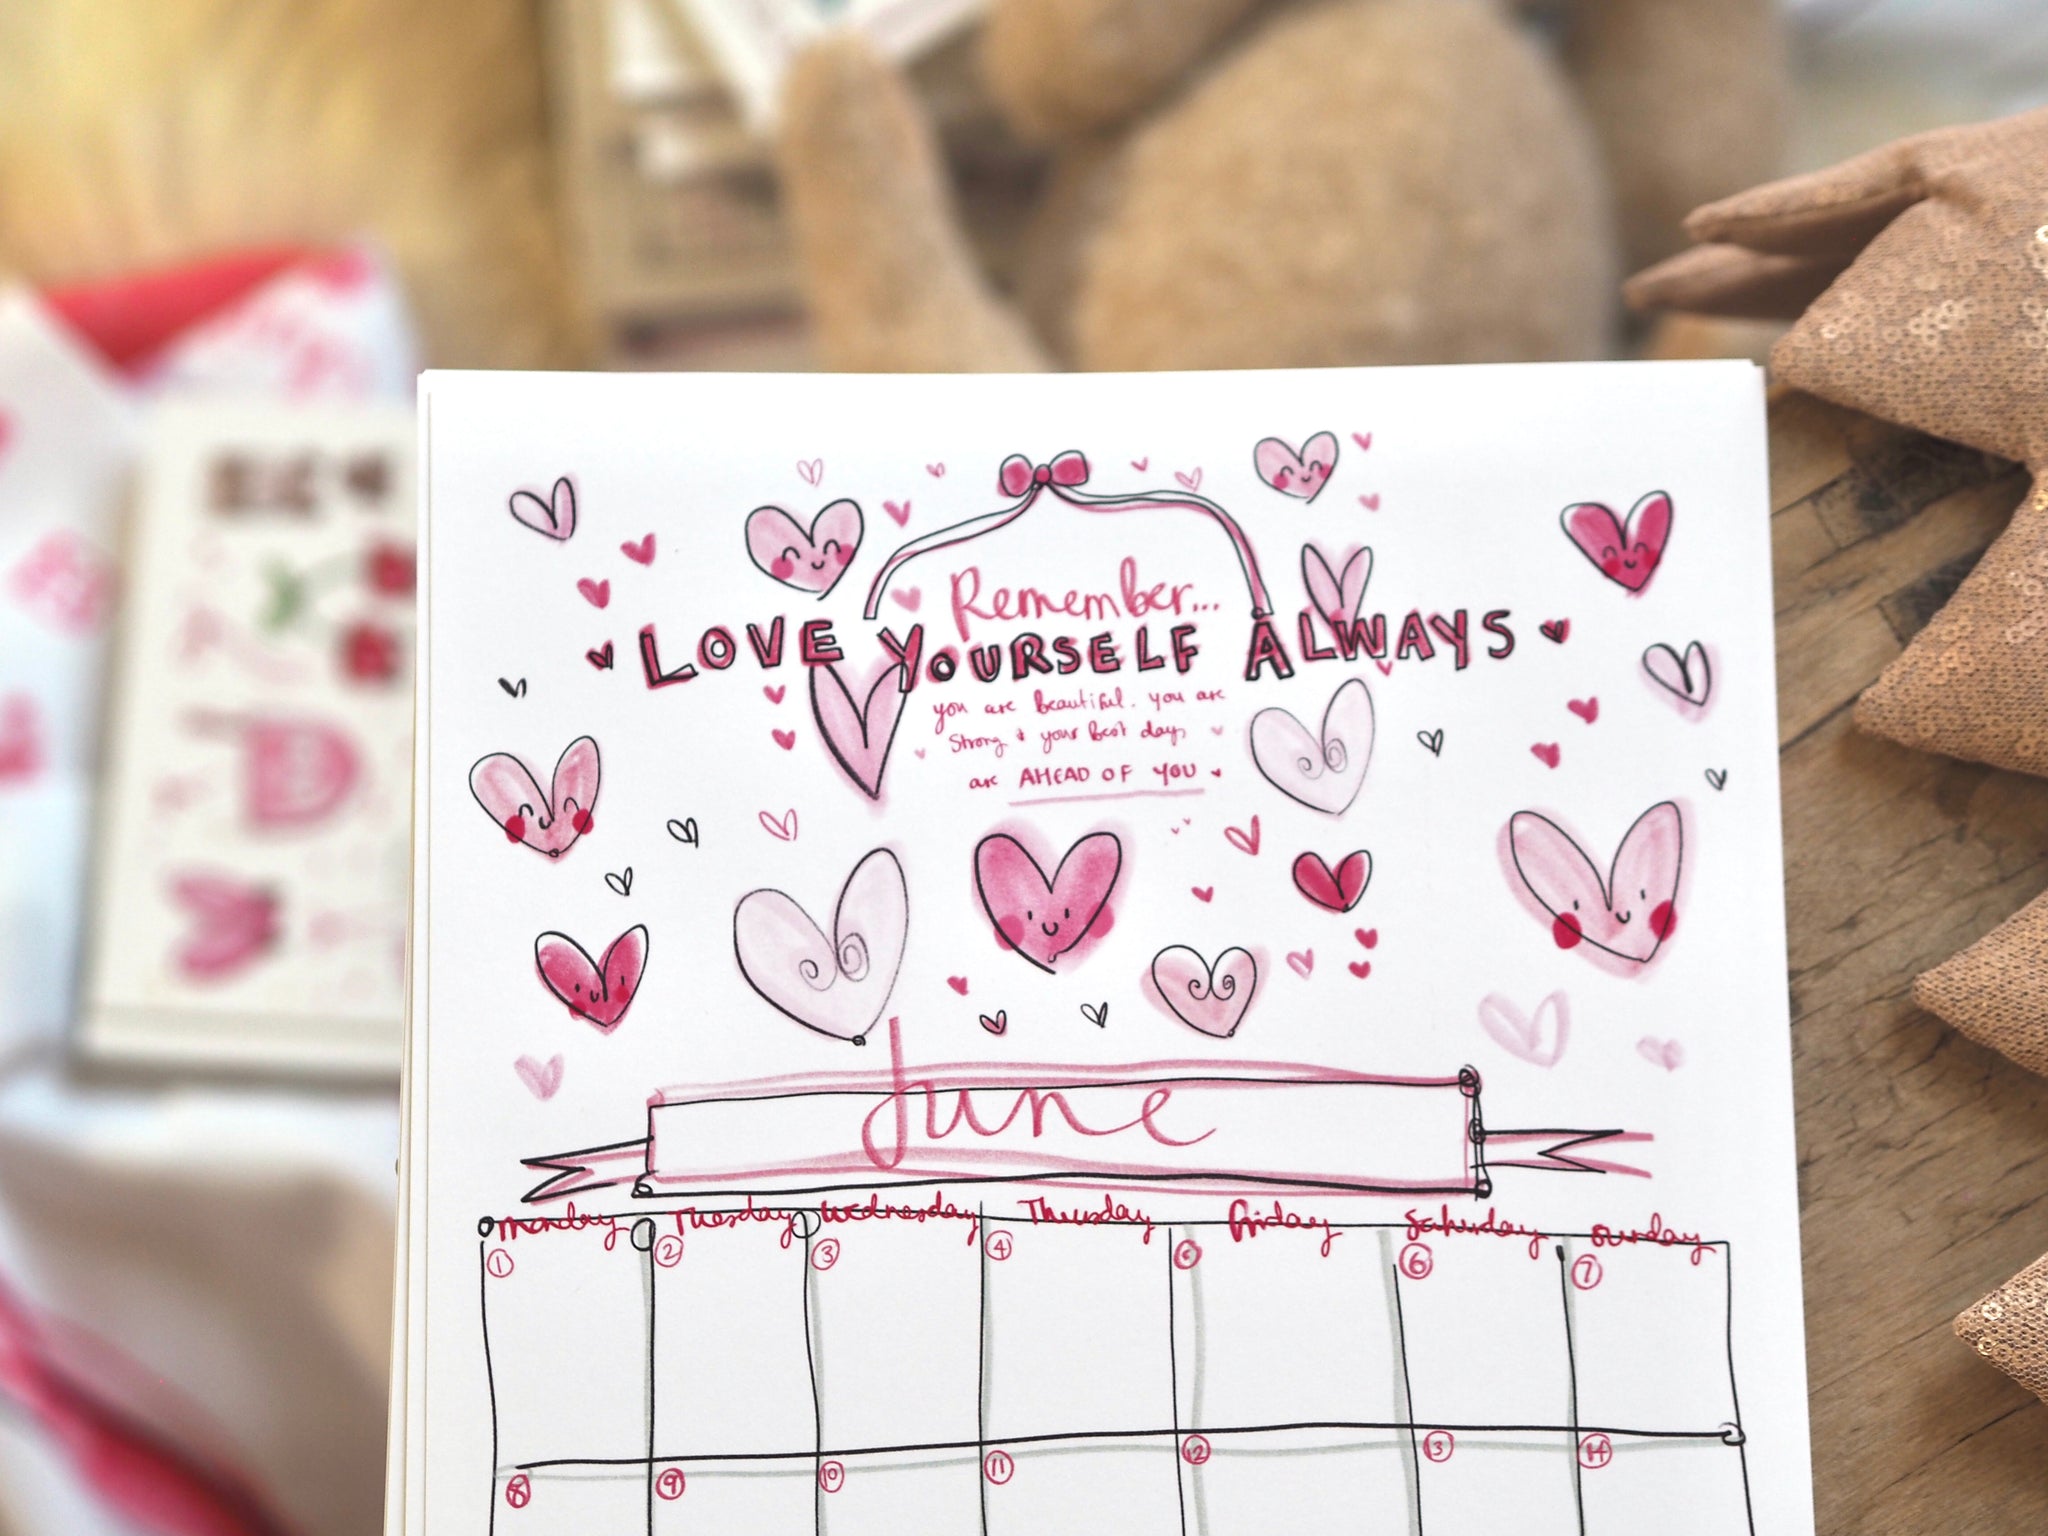 Remember...
LOVE YOURSELF ALWAYS
you are beautiful. you are
Strong & your best days
are AHEAD OF YOU
June
monday Tuesday wednesday Thursday friday Saturday sunday
1 2 3 4 5 6 7
8 9 10 11 12 13 14